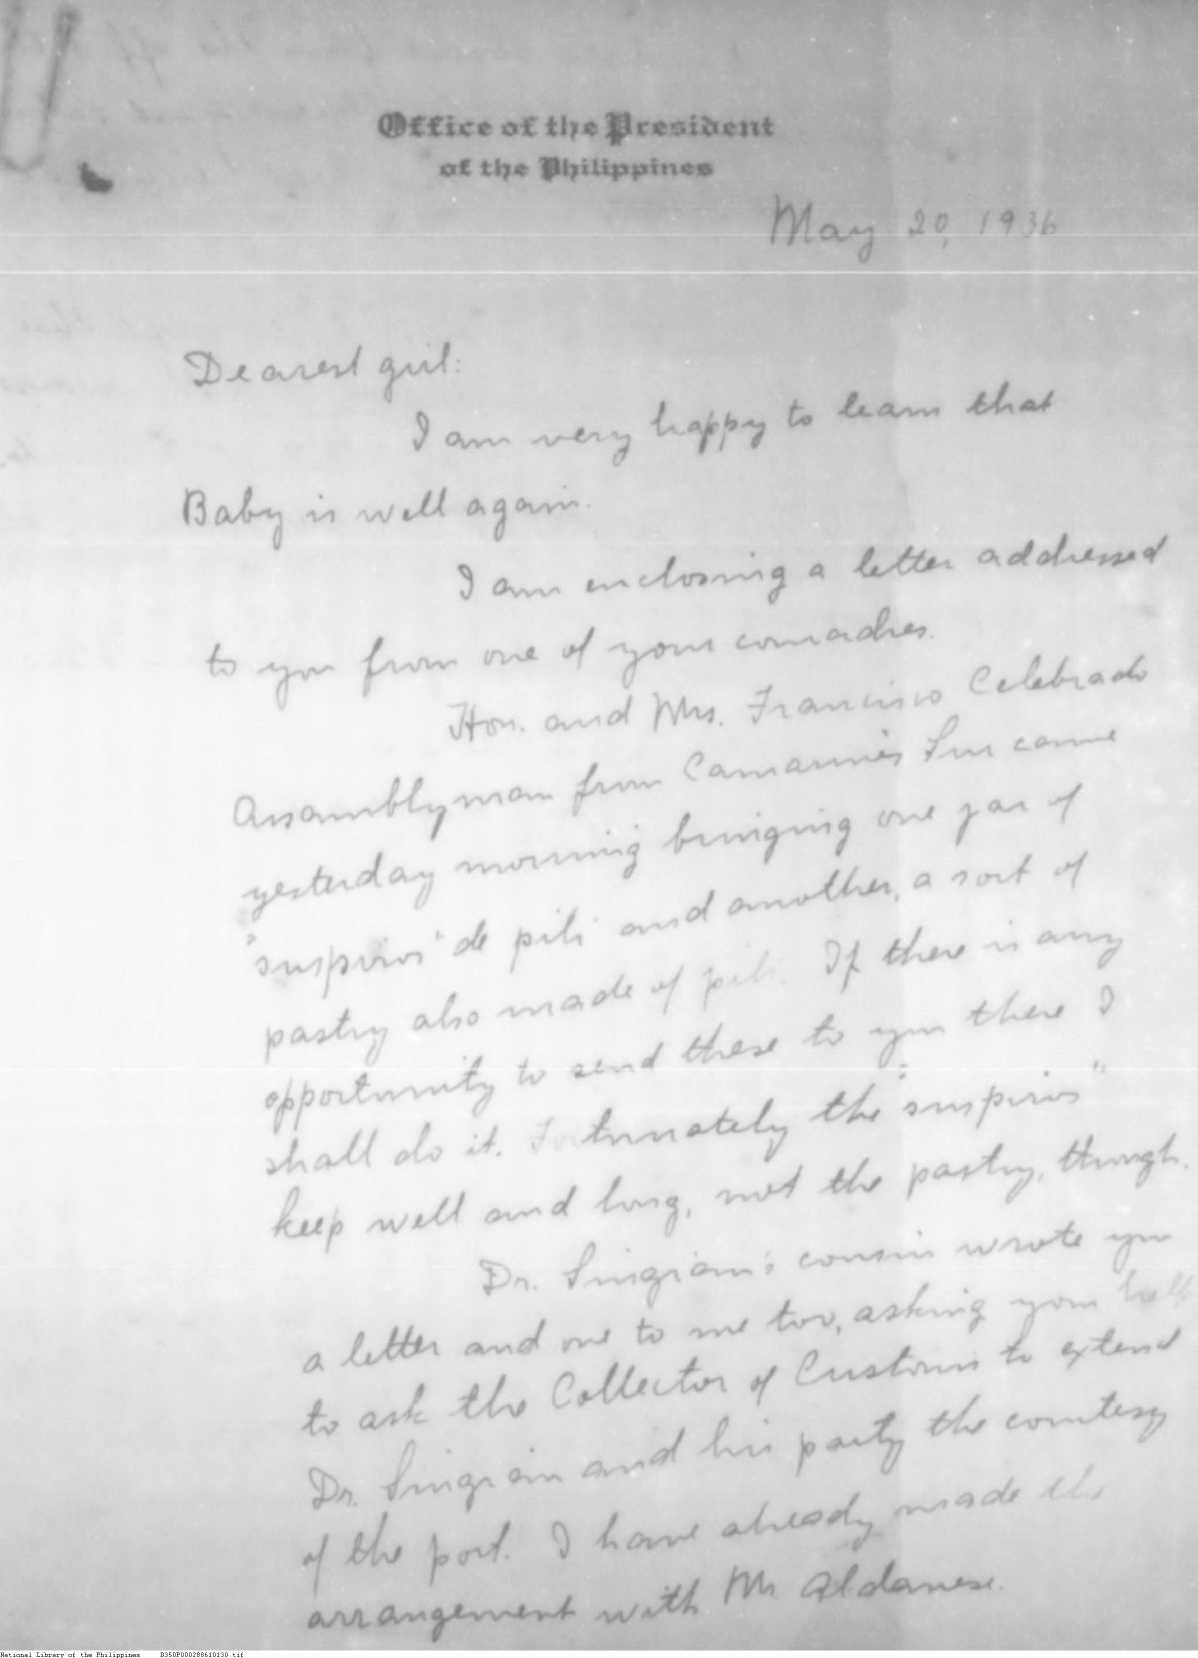 Office of the President
of the Philippines
May 20, 1936
Dearest girl:
I am very happy to learn that
Baby is well again.
I am enclosing a letter addressed
to you from one of your comadres.
Hon. and Mrs. Francisco Celebrado
Assamblyman from Camarines Sur came
yesterday morning bringing one jar of
"suspiros" de pili and another, a sort of
pastry also made of pili. If there is any
opportunity to send these to you there I
shall do it. Fortunately the "suspiros"
keep well and long, not the pastry, though.
Dr. Singian's cousin wrote you
a letter and one to me too, asking your help
to ask the Collector of Customs to extend
Dr. Singian and his party the courtesy
of the port. I have already made the
arrangement with Mr Aldanese.
National Library of the Philippines D350P000288610130.tif